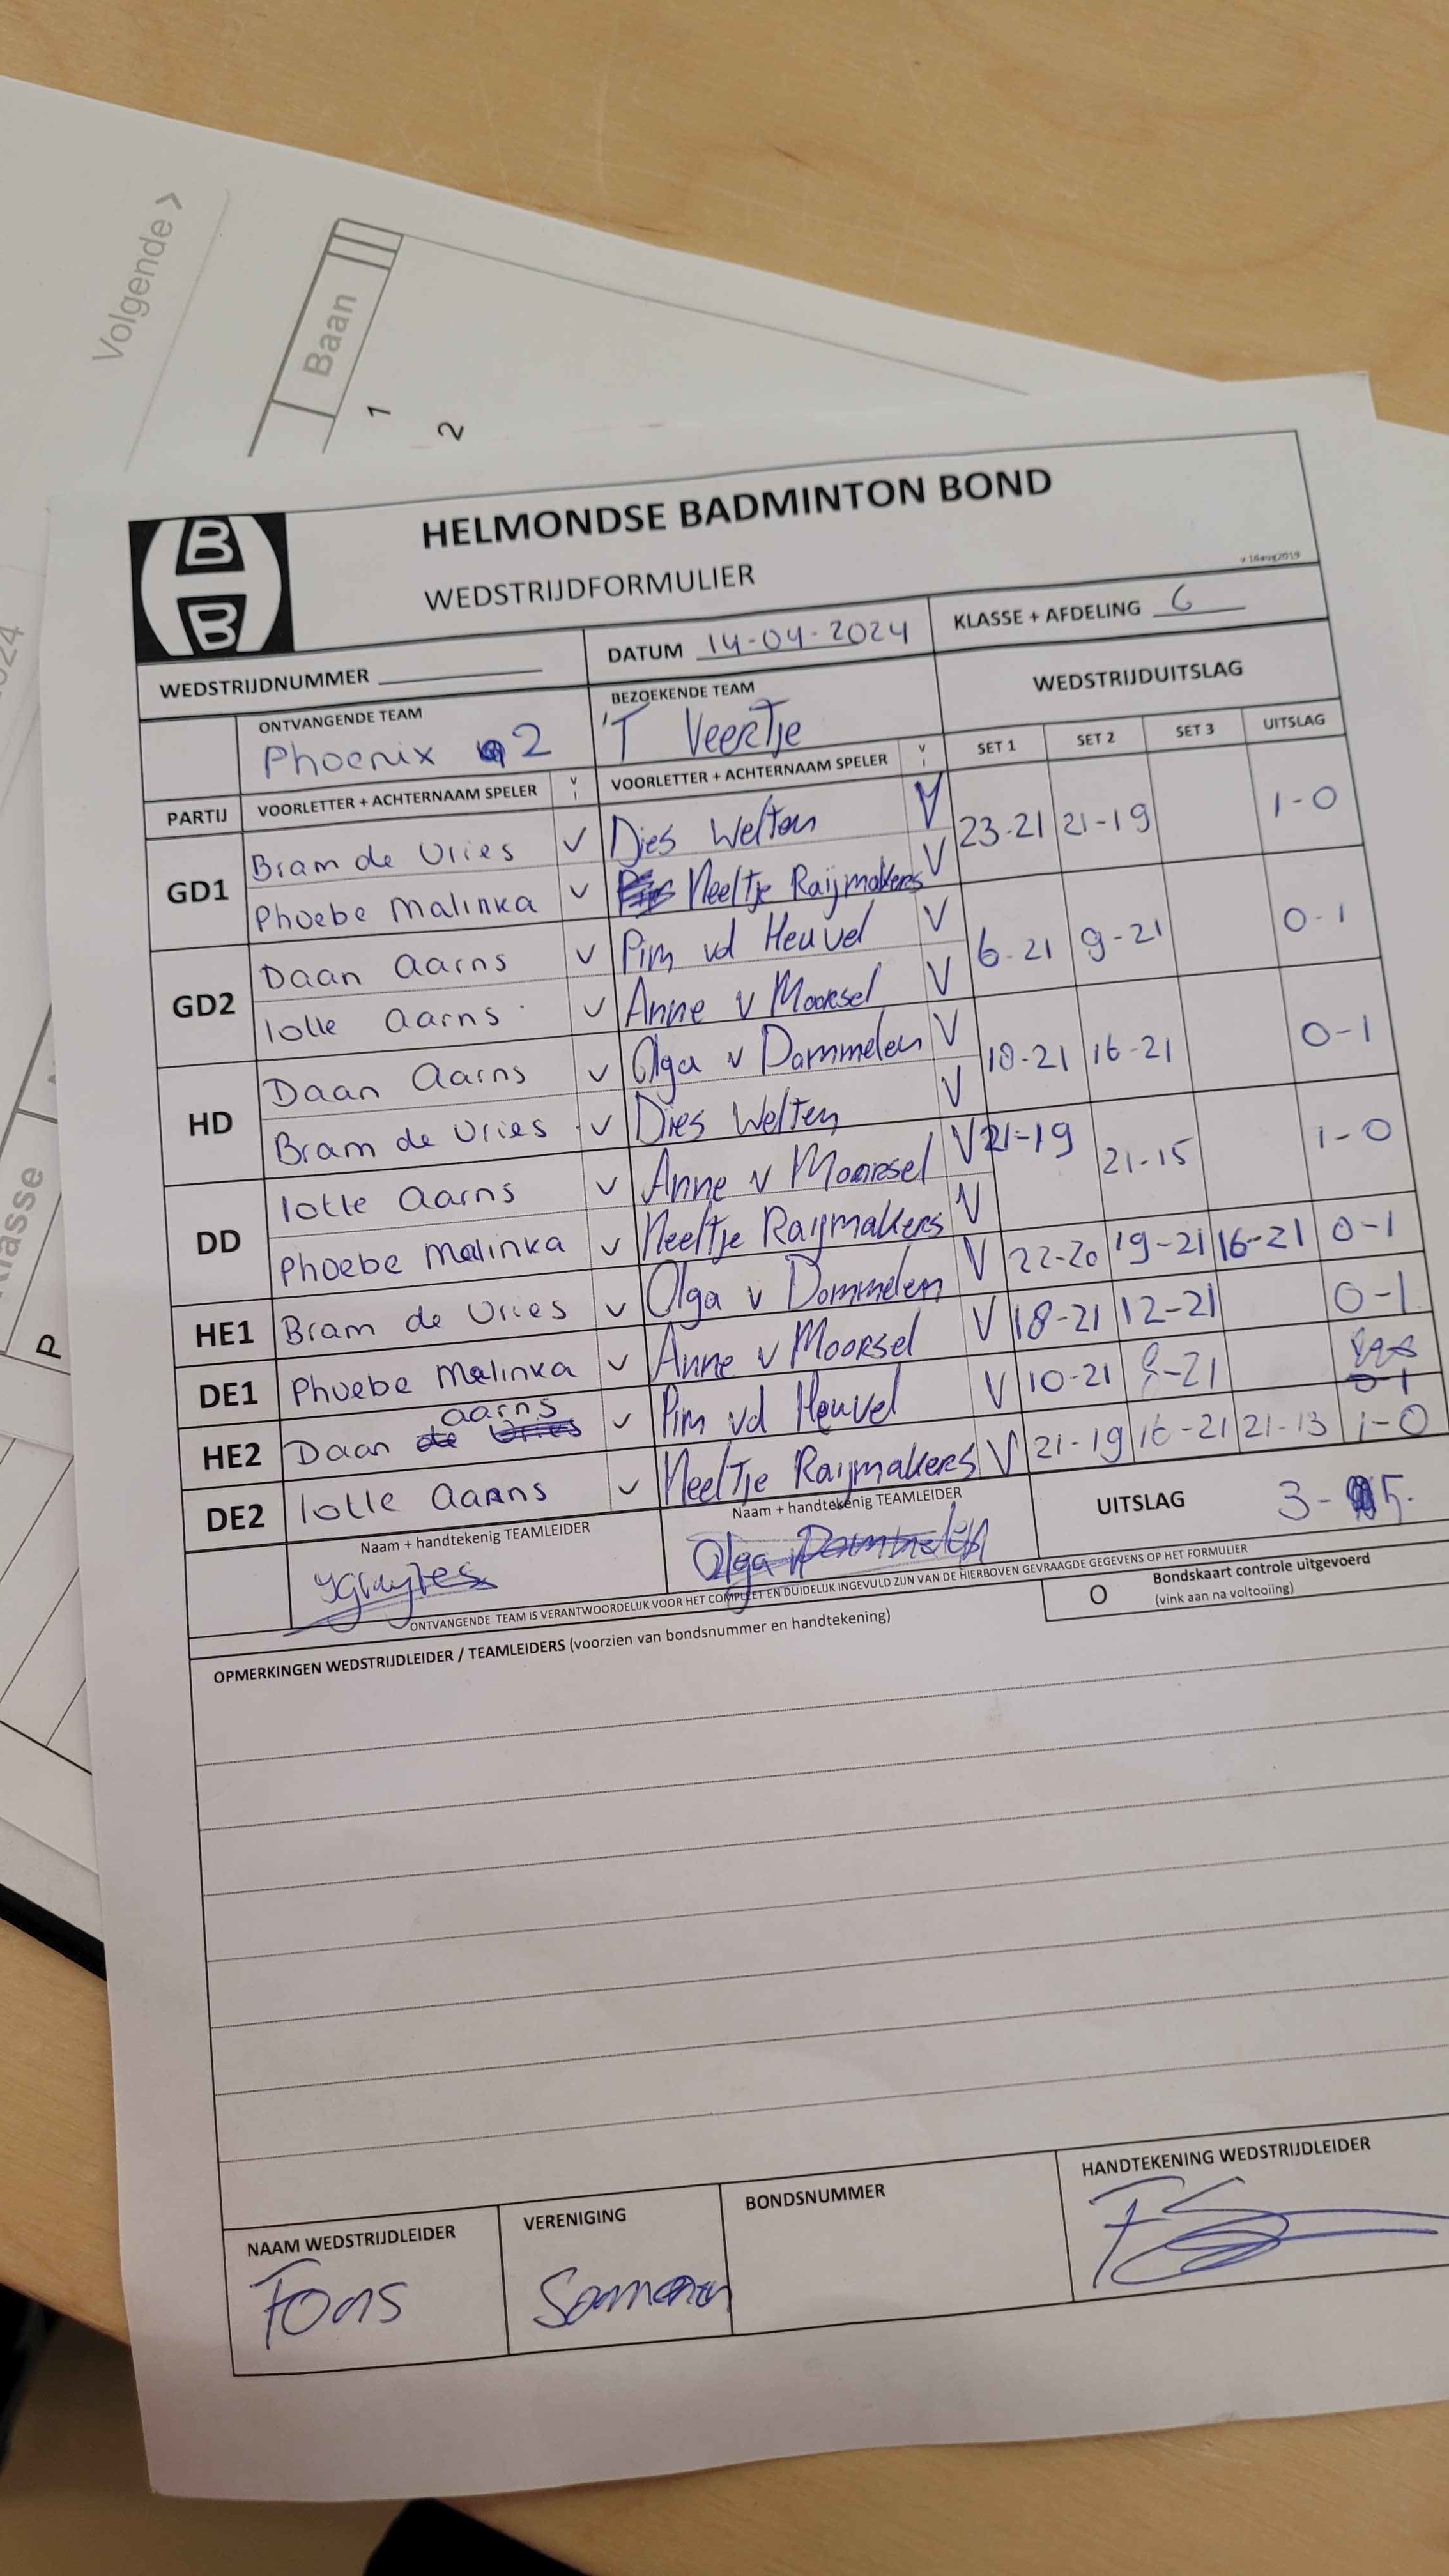 Volgende >
Baan
1
2
HELMONDSE BADMINTON BOND
WEDSTRIJDFORMULIER
v 16aug2019
WEDSTRIJDNUMMER
DATUM 14-04-2024
KLASSE + AFDELING 6
ONTVANGENDE TEAM
Phoenix 2
BEZOEKENDE TEAM
'T Veertje
WEDSTRIJDUITSLAG
PARTIJ VOORLETTER + ACHTERNAAM SPELER V I VOORLETTER + ACHTERNAAM SPELER V I SET 1 SET 2 SET 3 UITSLAG
GD1 Bram de Vries V Dies Welten V 23-21 21-19 1-0
Phoebe Malinka V Neeltje Raijmakers V
GD2 Daan Aarns V Pim vd Heuvel V 6-21 9-21 0-1
lotte Aarns V Anne v Moorsel V
HD Daan Aarns V Olga v Dommelen V 18-21 16-21 0-1
Bram de Vries V Dies Welten V
DD lotte Aarns V Anne v Moorsel V 21-19 21-15 1-0
Phoebe Malinka V Neeltje Raijmakers V
HE1 Bram de Vries V Olga v Dommelen V 22-20 19-21 16-21 0-1
DE1 Phoebe Malinka V Anne v Moorsel V 18-21 12-21 0-1
HE2 Daan aarns V Pim vd Heuvel V 10-21 8-21 0-1
DE2 lotte Aarns V Neeltje Raijmakers V 21-19 16-21 21-13 1-0
Naam + handtekenig TEAMLEIDER
Naam + handtekenig TEAMLEIDER
Olga
UITSLAG 3-5.
ONTVANGENDE TEAM IS VERANTWOORDELIJK VOOR HET COMPLEET EN DUIDELIJK INGEVULD ZIJN VAN DE HIERBOVEN GEVRAAGDE GEGEVENS OP HET FORMULIER
O Bondskaart controle uitgevoerd
(vink aan na voltooiing)
OPMERKINGEN WEDSTRIJDLEIDER / TEAMLEIDERS (voorzien van bondsnummer en handtekening)
NAAM WEDSTRIJDLEIDER
Fons
VERENIGING
BONDSNUMMER
HANDTEKENING WEDSTRIJDLEIDER
P